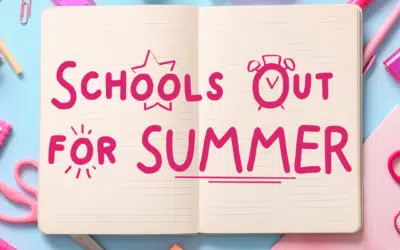 SCHOOLS OUT
FOR SUMMER